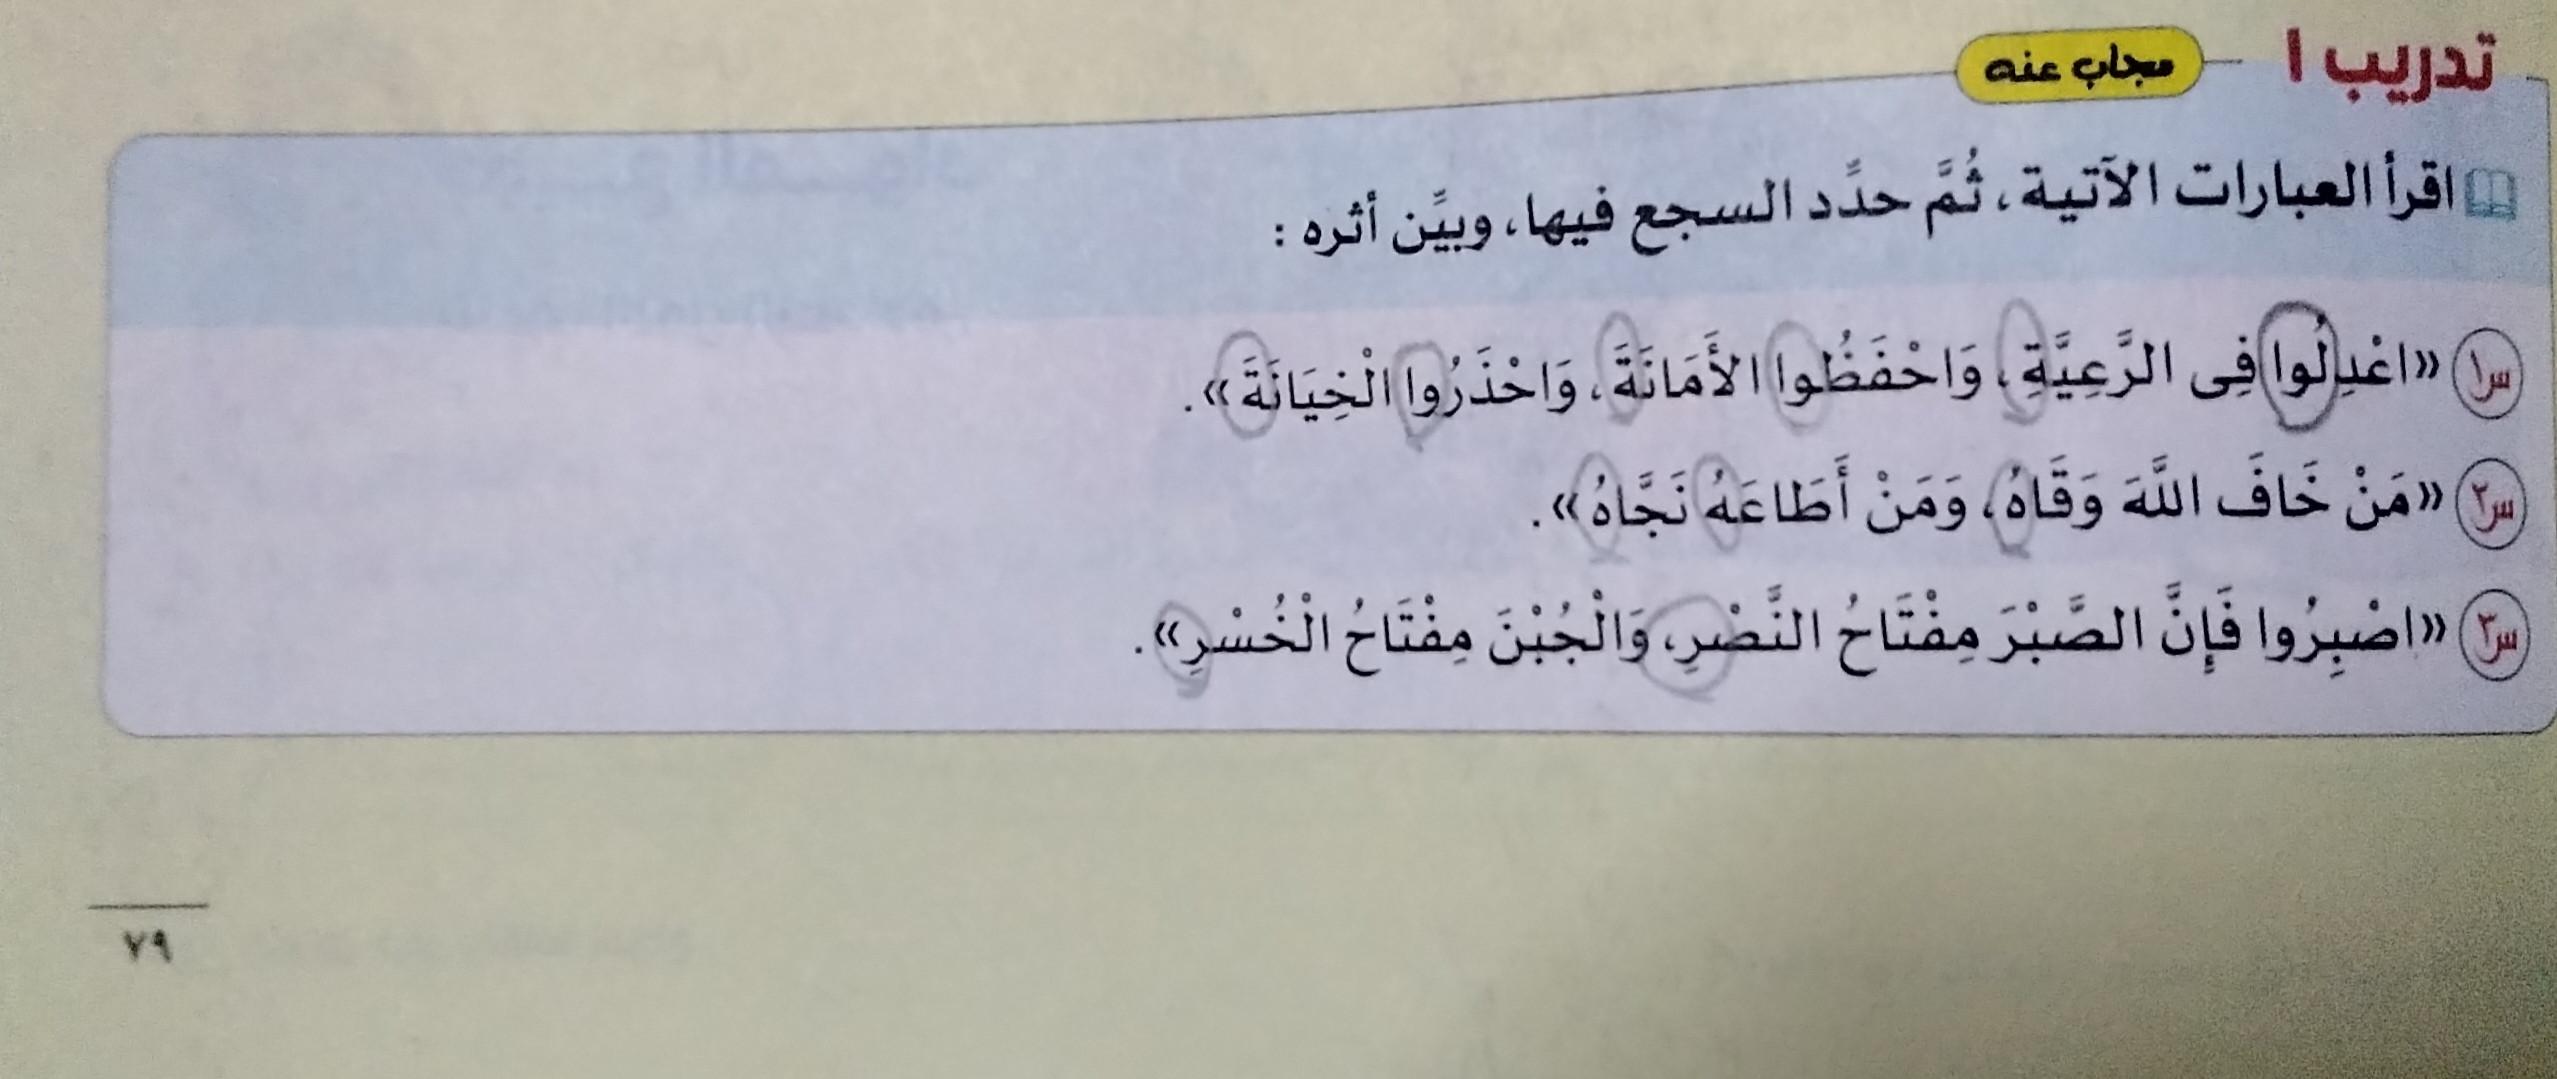 تدريب ١ مجاب عنه
اقرأ العبارات الآتية، ثُمَّ حدِّد السجع فيها، وبيِّن أثره :
س١ «اعْدِلُوا فِى الرَّعِيَّةِ، وَاحْفَظُوا الأَمَانَةَ، وَاحْذَرُوا الْخِيَانَةَ».
س٢ «مَنْ خَافَ اللَّهَ وَقَاهُ، وَمَنْ أَطَاعَهُ نَجَّاهُ».
س٣ «اصْبِرُوا فَإِنَّ الصَّبْرَ مِفْتَاحُ النَّصْرِ، وَالْجُبْنَ مِفْتَاحُ الْخُسْرِ».
٧٩